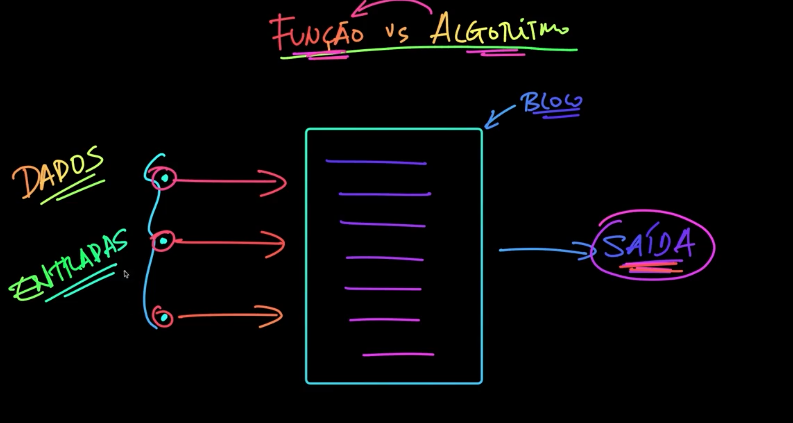 FUNÇÃO vs ALGORITMO
BLOCO
DADOS
ENTRADAS
SAÍDA